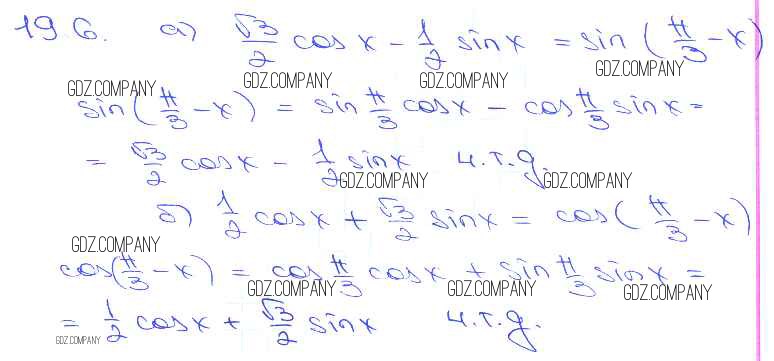 19 6. а) √3/2 cos x - 1/2 sin x = sin (π/3 - x)
GDZ.COMPANY GDZ.COMPANY GDZ.COMPANY GDZ.COMPANY
sin(π/3 - x) = sin π/3 cos x - cos π/3 sin x =
= √3/2 cos x - 1/2 sin x ч.т.д.
GDZ.COMPANY GDZ.COMPANY
б) 1/2 cos x + √3/2 sin x = cos (π/3 - x)
GDZ.COMPANY
cos(π/3 - x) = cos π/3 cos x + sin π/3 sin x =
GDZ.COMPANY GDZ.COMPANY GDZ.COMPANY
= 1/2 cos x + √3/2 sin x ч.т.д.
GDZ.COMPANY